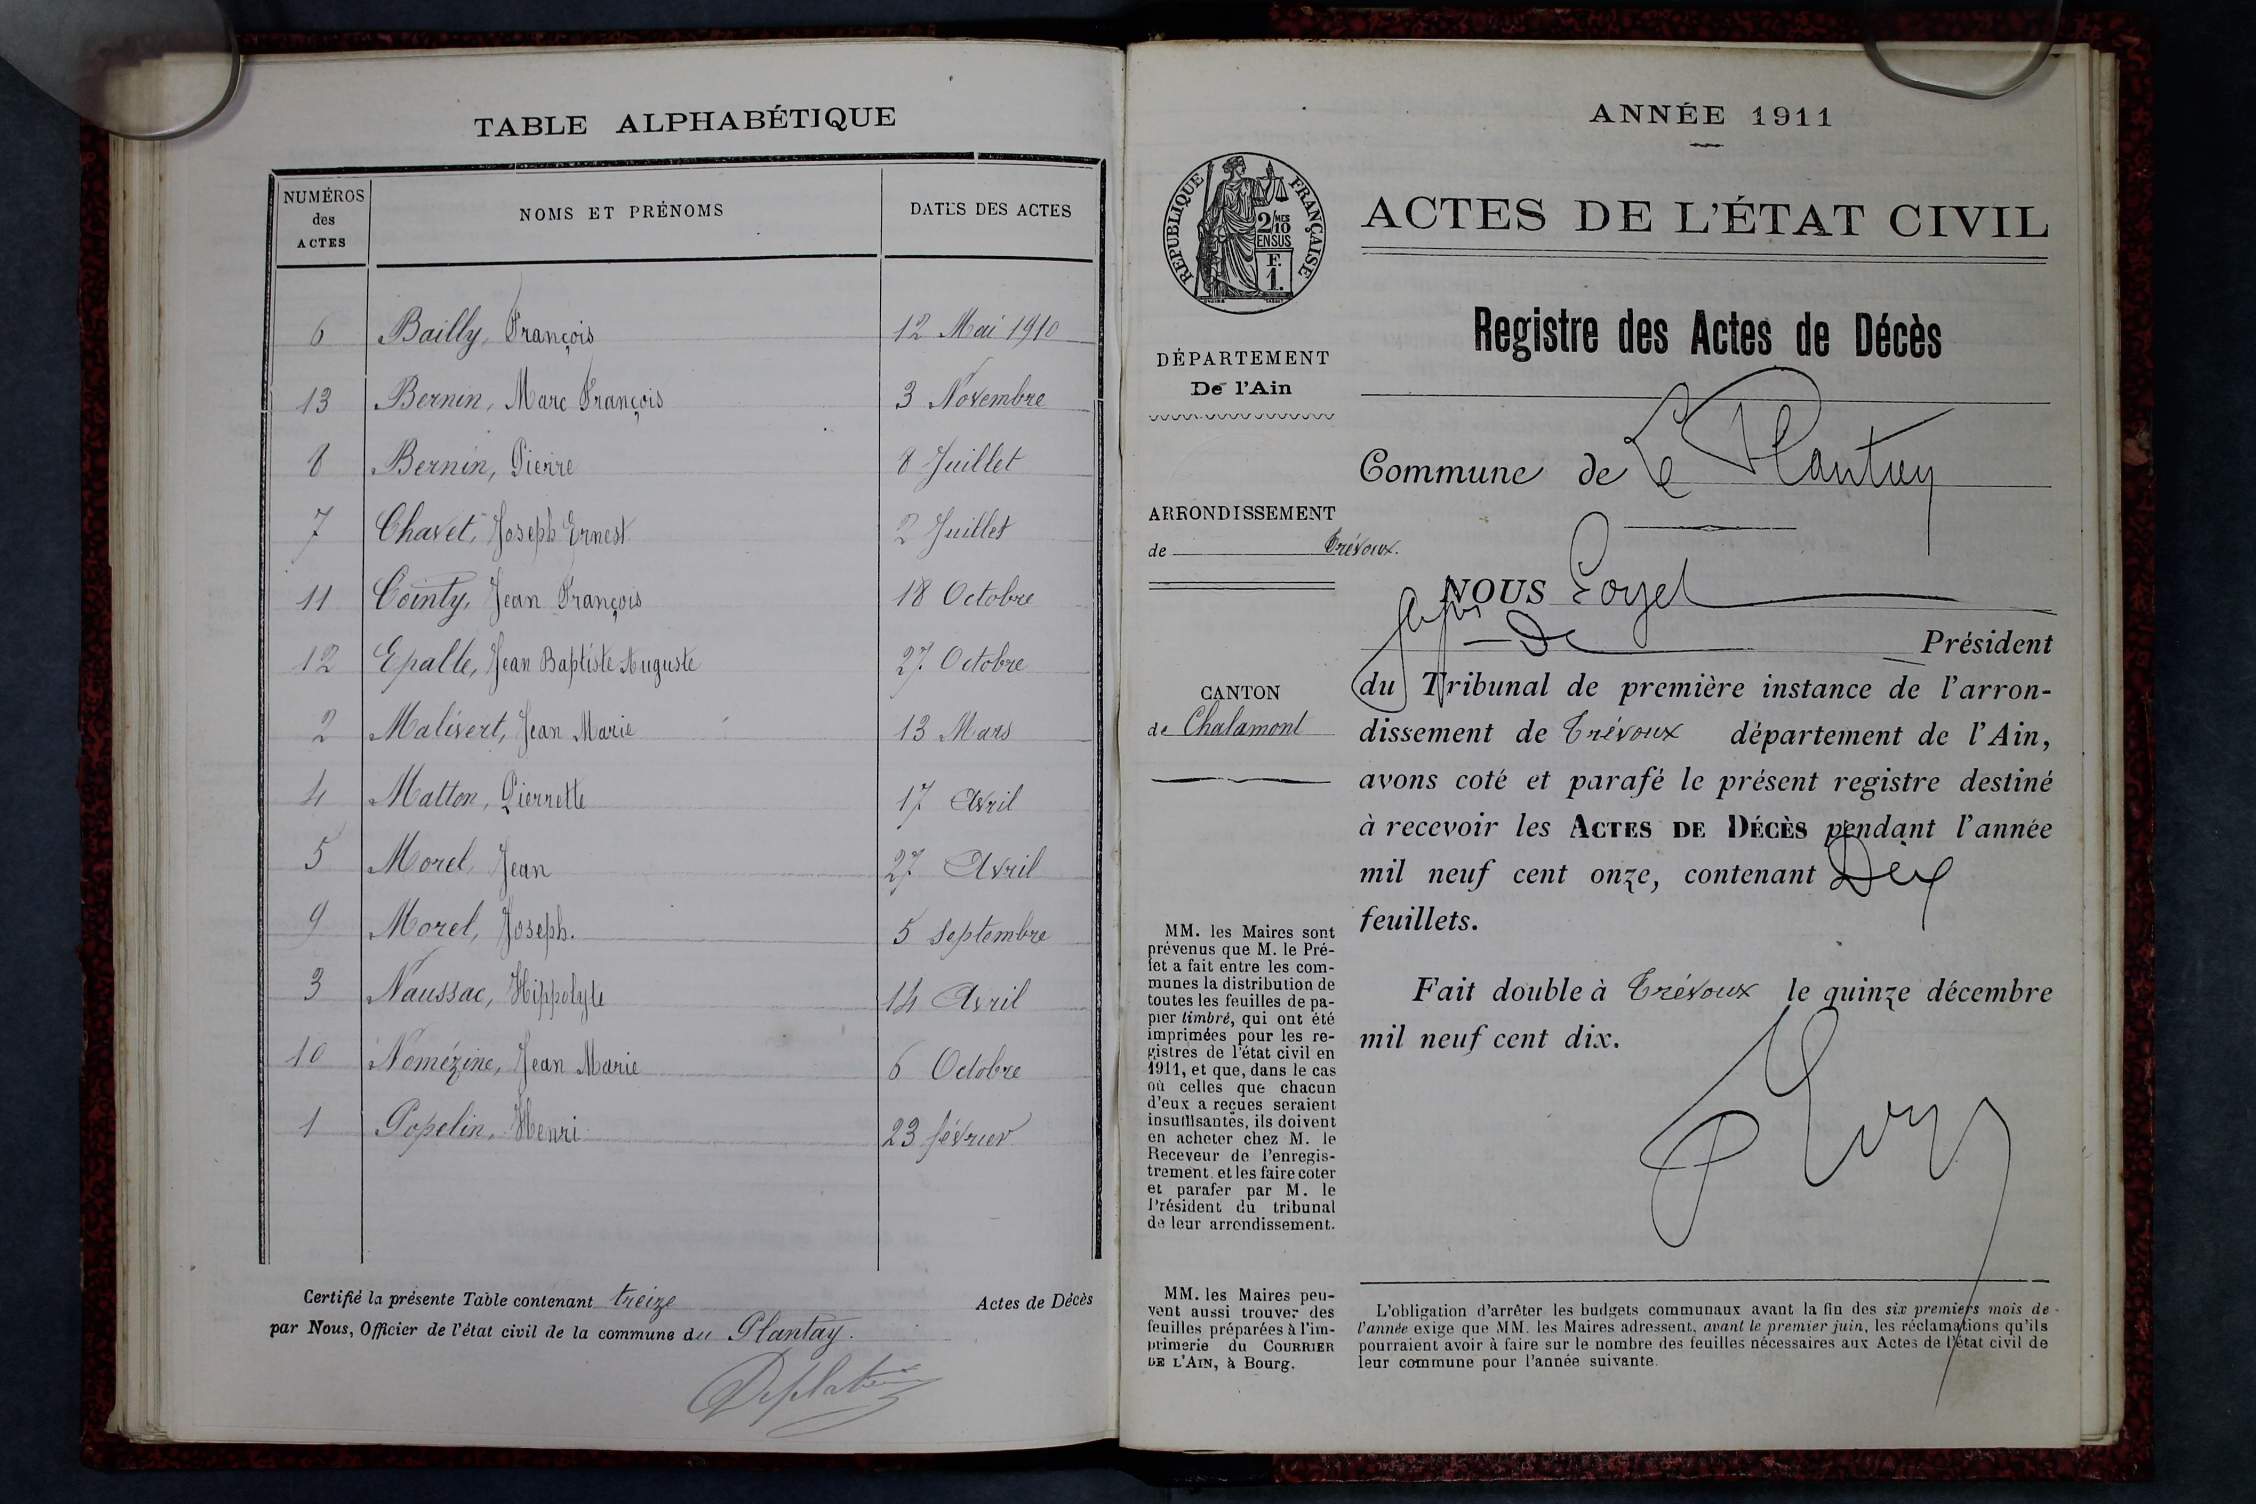 TABLE ALPHABÉTIQUE
NUMÉROS des ACTES NOMS ET PRÉNOMS DATES DES ACTES
6 Bailly, François 12 Mai 1910
13 Bernin, Marc François 3 Novembre
8 Bernin, Pierre 8 Juillet
7 Chavet, Joseph Ernest 2 Juillet
11 Cointy, Jean François 18 Octobre
12 Epalle, Jean Baptiste Auguste 27 Octobre
2 Malivert, Jean Marie 13 Mars
4 Matton, Pierrette 17 Avril
5 Morel, Jean 27 Avril
9 Morel, Joseph. 5 Septembre
3 Naussac, Hippolyte 14 Avril
10 Nomézine, Jean Marie 6 Octobre
1 Popelin, Henri 23 février
Certifié la présente Table contenant treize Actes de Décès
par Nous, Officier de l'état civil de la commune du Plantay.
ANNÉE 1911
RÉPUBLIQUE FRANÇAISE
2/10 MES
EN SUS
F.
1.
ACTES DE L'ÉTAT CIVIL
Registre des Actes de Décès
DÉPARTEMENT
De l'Ain
Commune de Le Plantay
ARRONDISSEMENT
de Trévoux.
NOUS
Président
du Tribunal de première instance de l'arron-
CANTON
de Chalamont
dissement de Trévoux département de l'Ain,
avons coté et parafé le présent registre destiné
à recevoir les ACTES DE DÉCÈS pendant l'année
mil neuf cent onze, contenant Dix
feuillets.
Fait double à Trévoux le quinze décembre
mil neuf cent dix.
MM. les Maires sont
prévenus que M. le Pré-
fet a fait entre les com-
munes la distribution de
toutes les feuilles de pa-
pier timbré, qui ont été
imprimées pour les re-
gistres de l'état civil en
1911, et que, dans le cas
où celles que chacun
d'eux a reçues seraient
insuffisantes, ils doivent
en acheter chez M. le
Receveur de l'enregis-
trement. et les faire coter
et parafer par M. le
Président du tribunal
de leur arrondissement.
MM. les Maires peu-
vent aussi trouver des
feuilles préparées à l'im-
primerie du COURRIER
DE L'AIN, à Bourg.
L'obligation d'arrêter les budgets communaux avant la fin des six premiers mois de
l'année exige que MM. les Maires adressent, avant le premier juin, les réclamations qu'ils
pourraient avoir à faire sur le nombre des feuilles nécessaires aux Actes de l'état civil de
leur commune pour l'année suivante.